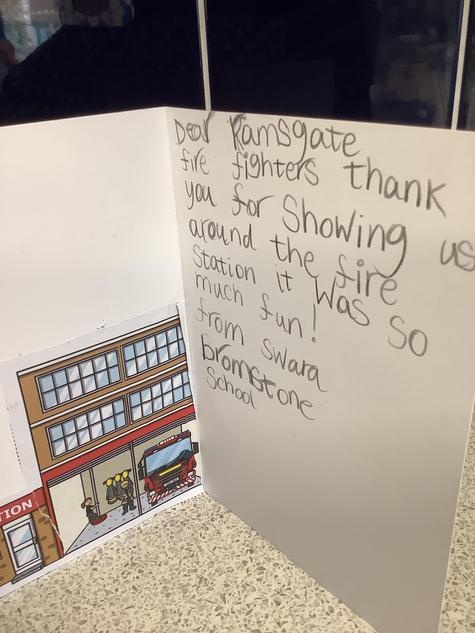 Dear Ramsgate
fire fighters thank
you for Showing us
around the fire
Station it was so
much fun!
from Swara
bromstone
School
TION